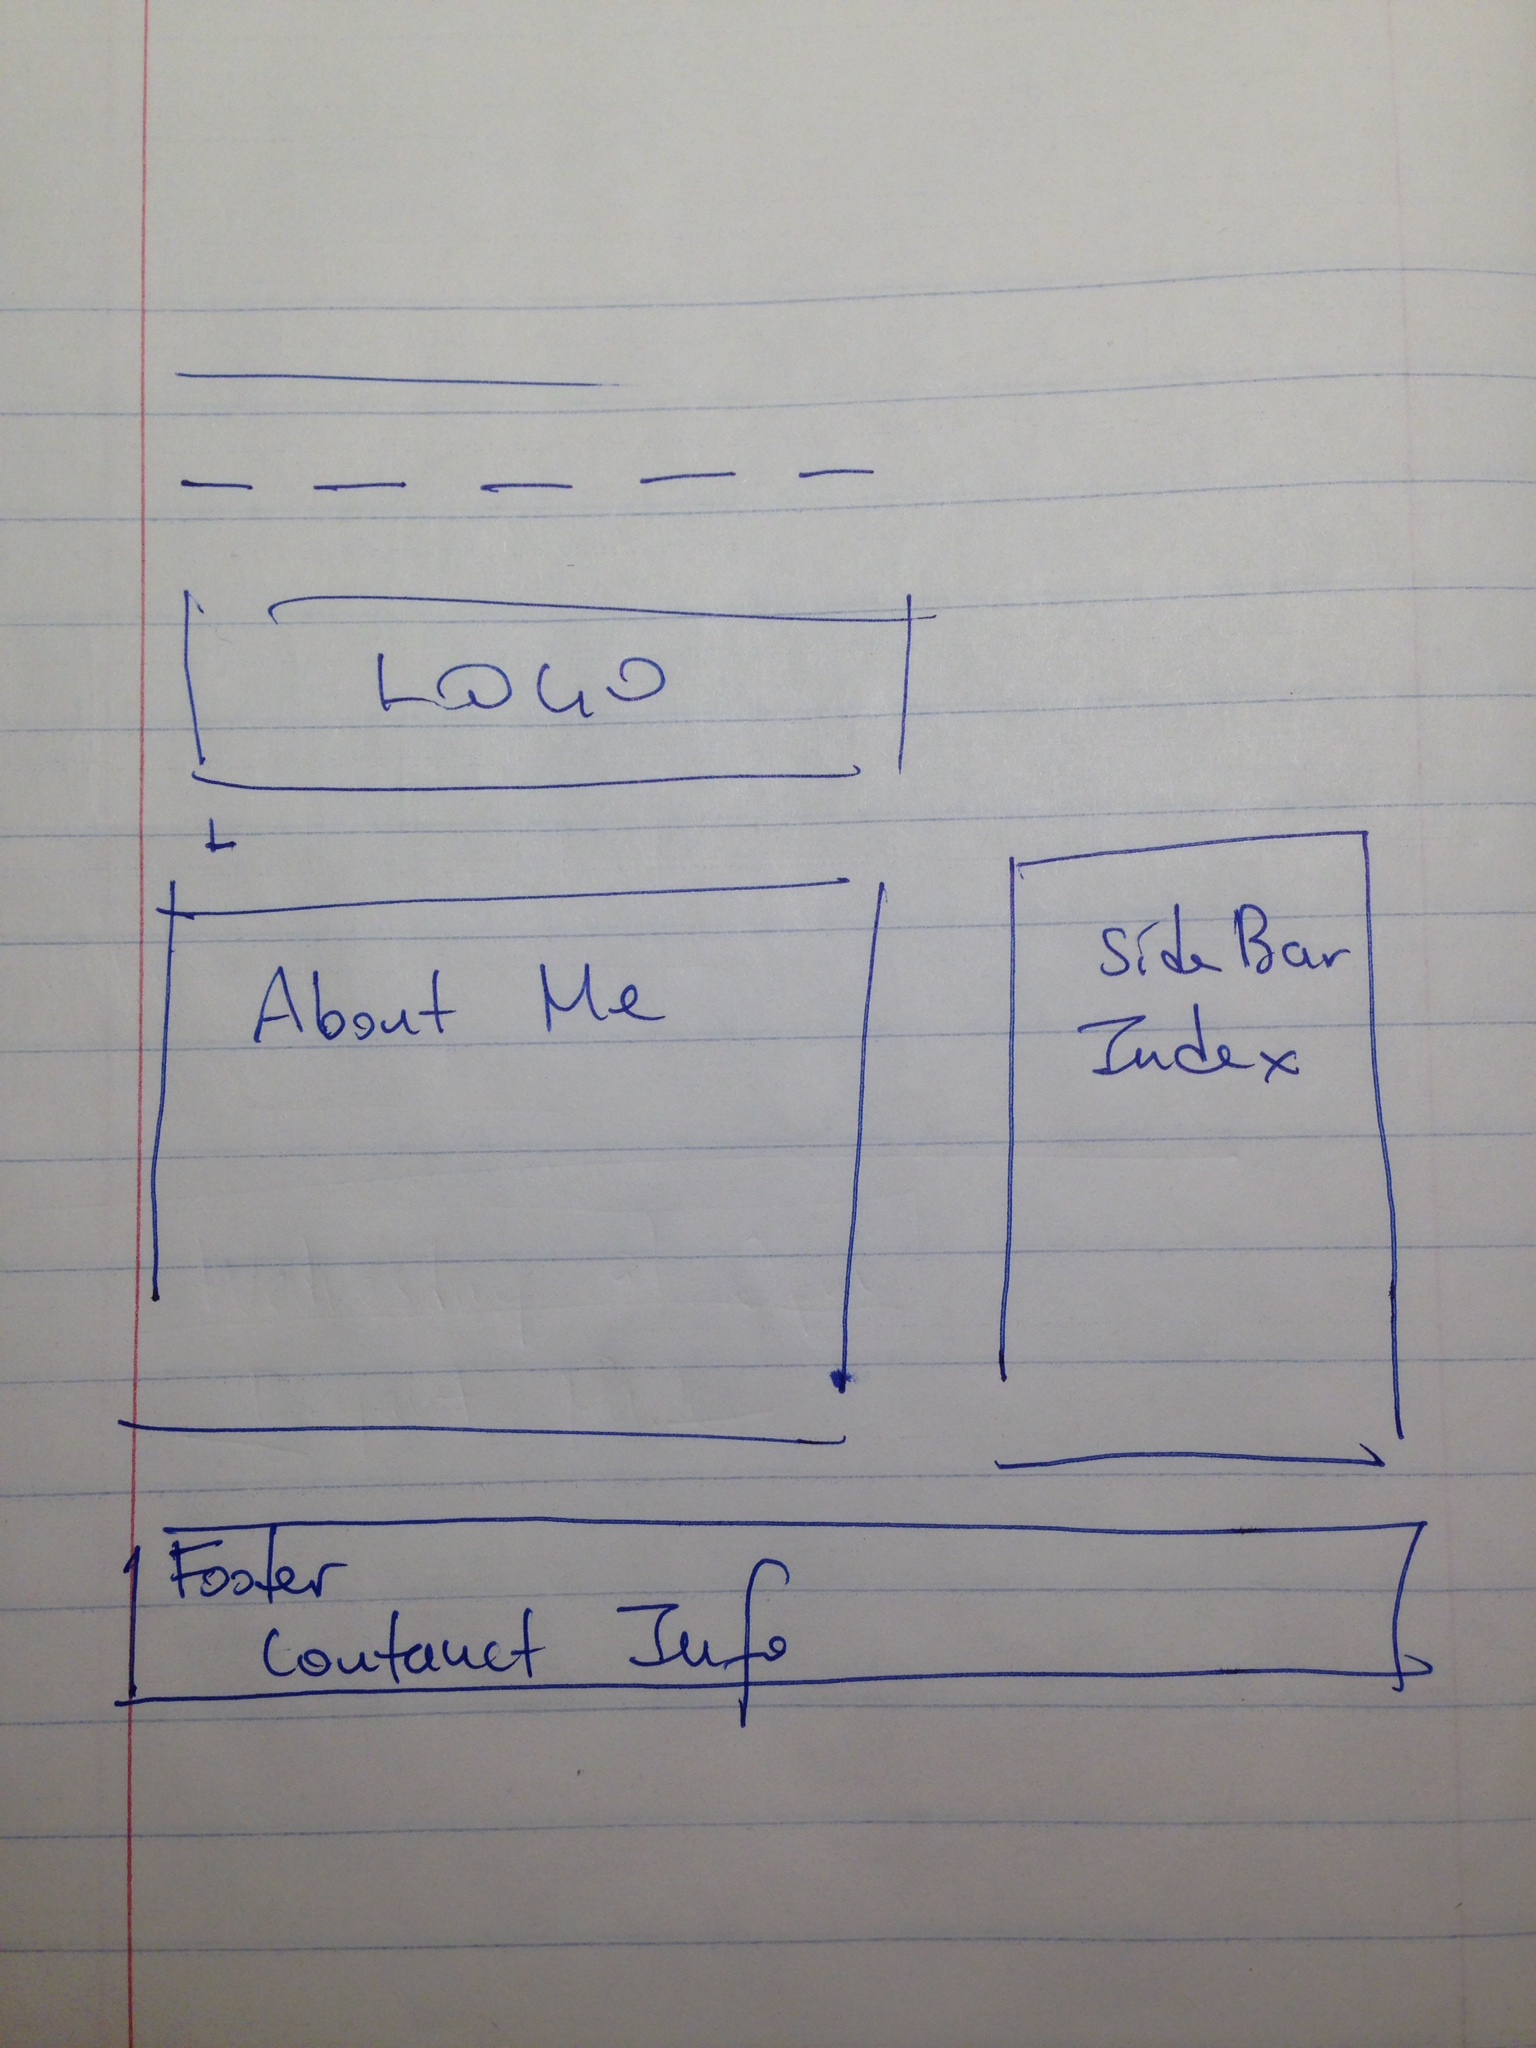 LOGO
About Me
Side Bar
Index
Footer
Contanct Info